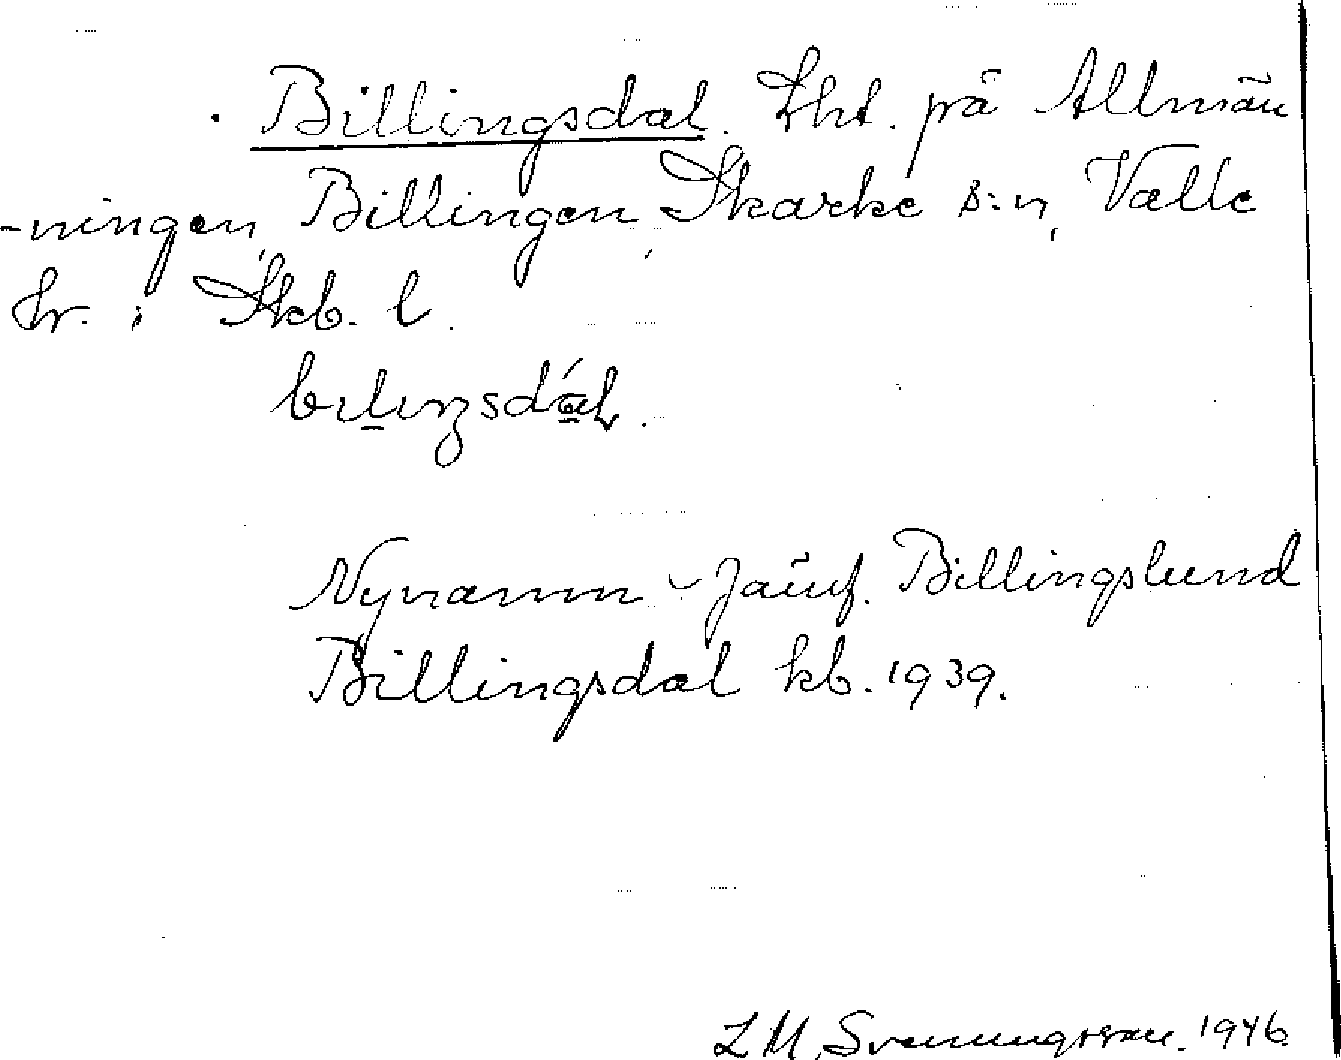 Billingsdal. Lht. på Allmän
-ningen, Billingen, Skarke s:n, Valle
hr. i Skb. l.
Nynamn - Jämf. Billingslund
Billingsdal kb. 1939.
L M, Svenungsson. 1946